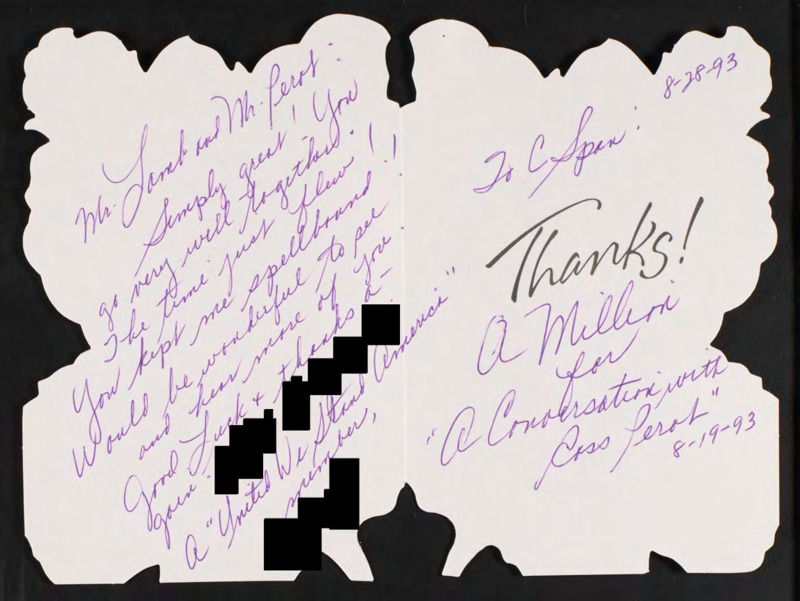 Mr. Lamb and Mr. Perot:
Simply great! You
go very well together.
The time just flew!
You kept me spellbound!
Would be wonderful to see
and hear more of you.
Good Luck & thanks a-
gain.
A "United We Stand America"
member,
8-28-93
To C Span:
Thanks!
A Million
for
"A Conversation with
Ross Perot"
8-19-93